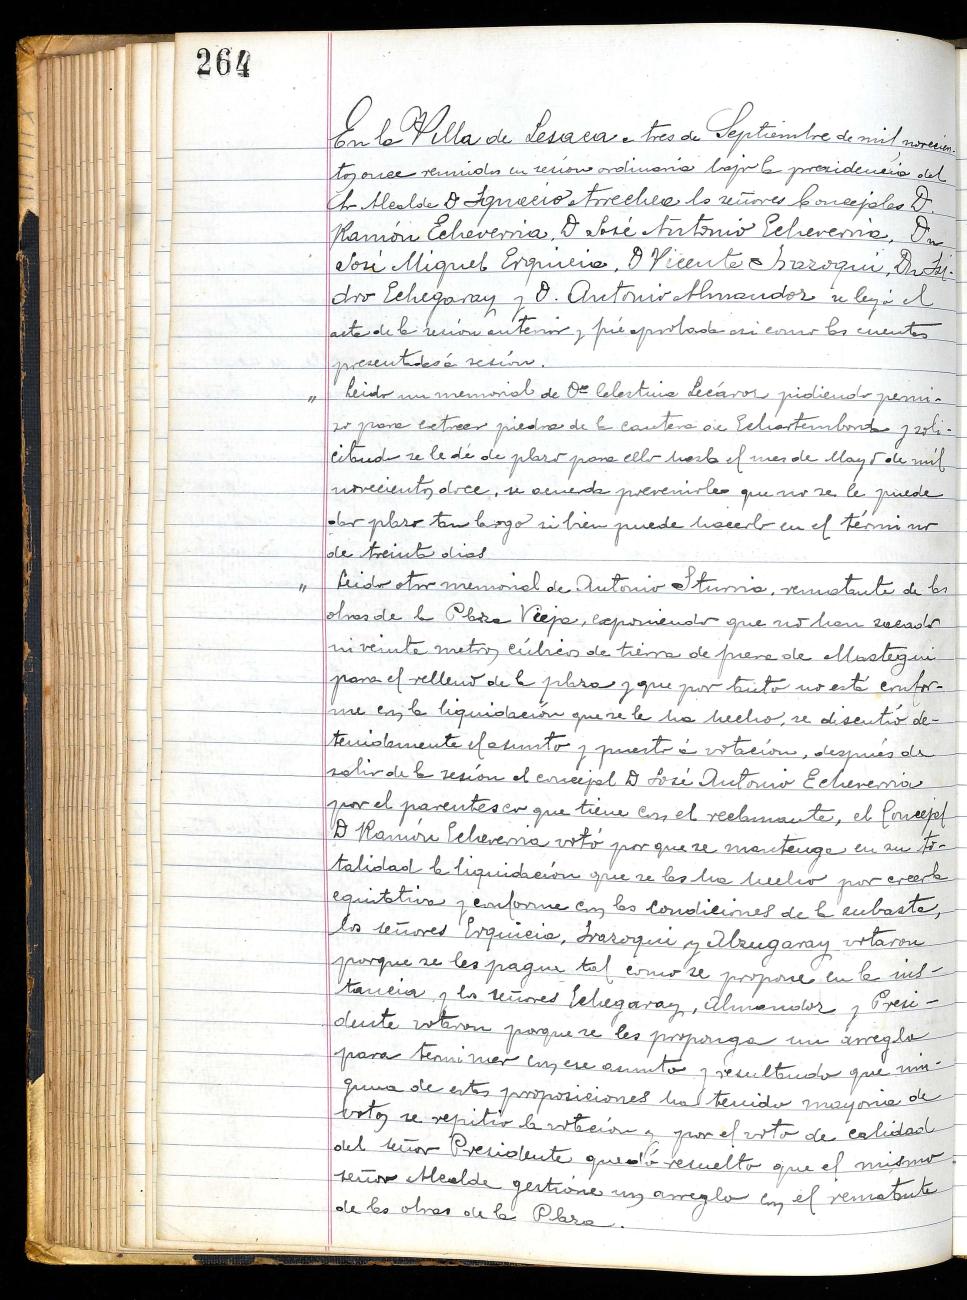 264
En la Villa de Lesaca a tres de Septiembre de mil novecien-
tos once reunidos en sesión ordinaria bajo la presidencia del
Sr Alcalde D Ignacio Arrechea los señores Concejales D.
Ramón Echeverria, D José Antonio Echeverria, Dn
José Miguel Erquicia, D Vicente Irazoqui, Dn Isi-
dro Echegaray y D. Antonio Almandoz se leyó el
acta de la sesión anterior y fué aprobada asi como las cuentas
presentadas á sesión.
" Leido un memorial de Da Celestina Lecároz pidiendo permi-
so para extraer piedra de la cantera de Echartemborda y soli-
citando se le dé de plazo para ello hasta el mes de Mayo de mil
novecientos doce, se acuerda prevenirle que no se le puede
dar plazo tan largo si bien puede hacerlo en el término
de treinta dias
" Leido otro memorial de Antonio Iturria, rematante de las
obras de la Plaza Vieja, exponiendo que no han sacado
ni veinte metros cúbicos de tierra de fuera de Mastegui
para el relleno de la plaza y que por tanto no está confor-
me con la liquidación que se le ha hecho, se discutió de-
tenidamente el asunto y puesto á votación, después de
salir de la sesión el concejal D José Antonio Echeverria
por el parentesco que tiene con el reclamante, el Concejal
D Ramón Echeverria votó por que se mantenga en su to-
talidad la liquidación que se les ha hecho por creerla
equitativa y conforme con las condiciones de la subasta,
los señores Erquicia, Irazoqui y Alzugaray votaron
porque se les pague tal como se propone en la ins-
tancia y los señores Echegaray, Almandoz y Presi-
dente votaron porque se les proponga un arreglo
para terminar con ese asunto y resultando que nin-
guna de estas proposiciones ha tenido mayoria de
votos se repitio la votación y por el voto de calidad
del señor Presidente quedó resuelto que el mismo
señor Alcalde gestione un arreglo con el rematante
de las obras de la Plaza.